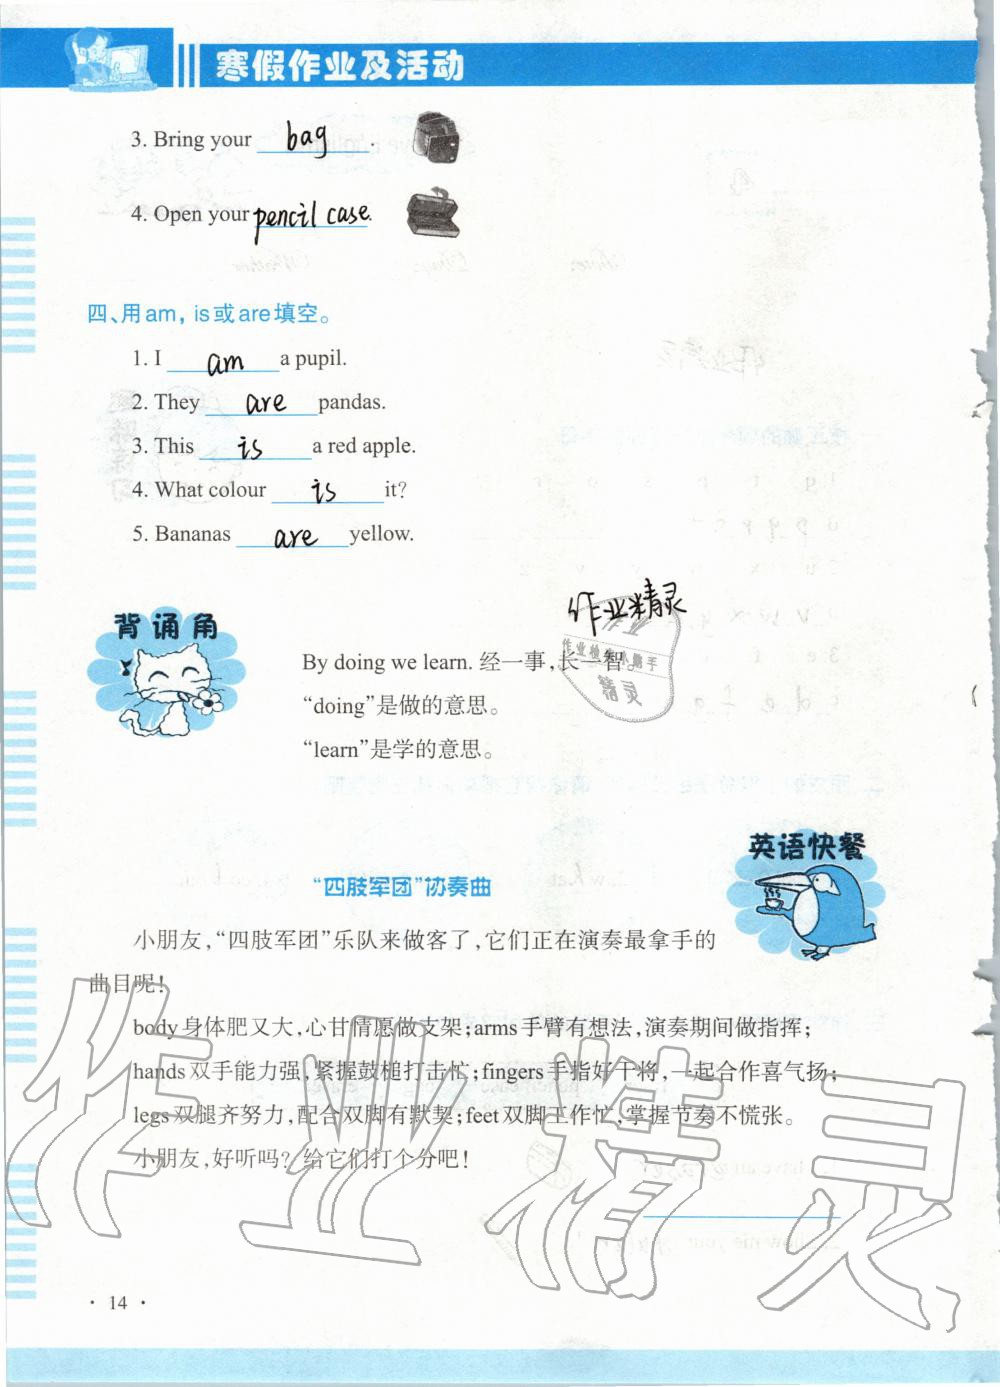 寒假作业及活动
3. Bring your bag.
4. Open your pencil case.
四、用am，is或are填空。
1. I am a pupil.
2. They are pandas.
3. This is a red apple.
4. What colour is it?
5. Bananas are yellow.
背诵角
作业精灵
By doing we learn. 经一事，长一智。
“doing”是做的意思。
“learn”是学的意思。
英语快餐
“四肢军团”协奏曲
小朋友，“四肢军团”乐队来做客了，它们正在演奏最拿手的
曲目呢！
body身体肥又大，心甘情愿做支架；arms手臂有想法，演奏期间做指挥；
hands双手能力强，紧握鼓槌打击忙；fingers手指好干将，一起合作喜气扬；
legs双腿齐努力，配合双脚有默契；feet双脚工作忙，掌握节奏不慌张。
小朋友，好听吗？给它们打个分吧！
作业精灵
· 14 ·